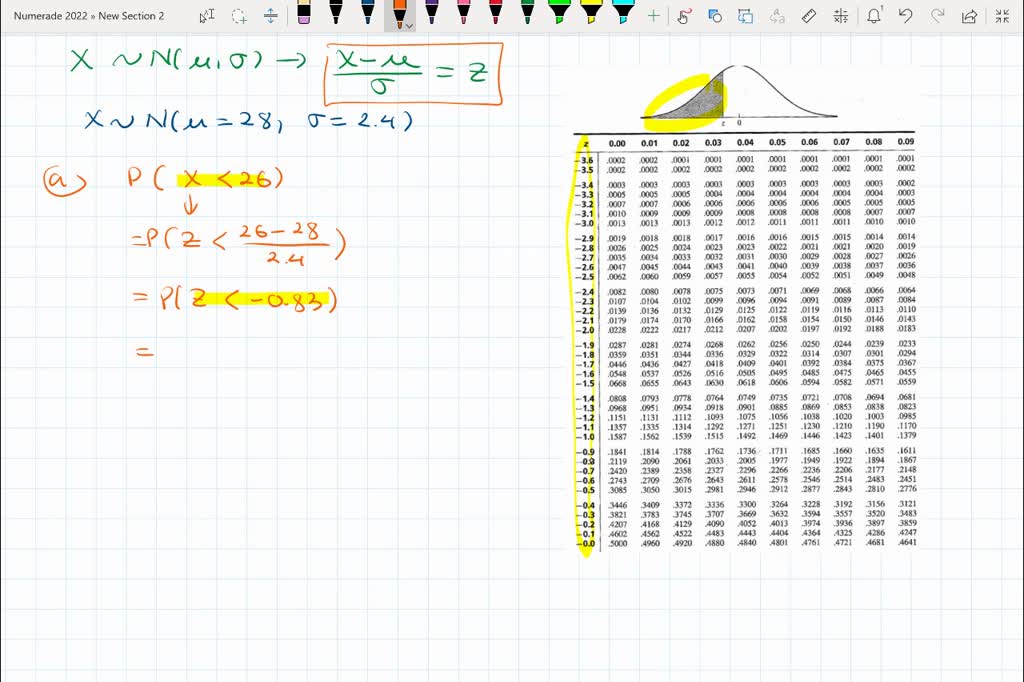 Numerade 2022 » New Section 2
X ~ N(μ, σ) → x-μ/σ = z
X ~ N(μ = 28, σ = 2.4)
a) P( X < 26)
↓
= P( Z < 26-28/2.4 )
= P( Z < -0.83)
=
z 0
z 0.00 0.01 0.02 0.03 0.04 0.05 0.06 0.07 0.08 0.09
-3.6 .0002 .0002 .0001 .0001 .0001 .0001 .0001 .0001 .0001 .0001
-3.5 .0002 .0002 .0002 .0002 .0002 .0002 .0002 .0002 .0002 .0002
-3.4 .0003 .0003 .0003 .0003 .0003 .0003 .0003 .0003 .0003 .0002
-3.3 .0005 .0005 .0005 .0004 .0004 .0004 .0004 .0004 .0004 .0003
-3.2 .0007 .0007 .0006 .0006 .0006 .0006 .0006 .0005 .0005 .0005
-3.1 .0010 .0009 .0009 .0009 .0008 .0008 .0008 .0008 .0007 .0007
-3.0 .0013 .0013 .0013 .0012 .0012 .0011 .0011 .0011 .0010 .0010
-2.9 .0019 .0018 .0018 .0017 .0016 .0016 .0015 .0015 .0014 .0014
-2.8 .0026 .0025 .0024 .0023 .0023 .0022 .0021 .0021 .0020 .0019
-2.7 .0035 .0034 .0033 .0032 .0031 .0030 .0029 .0028 .0027 .0026
-2.6 .0047 .0045 .0044 .0043 .0041 .0040 .0039 .0038 .0037 .0036
-2.5 .0062 .0060 .0059 .0057 .0055 .0054 .0052 .0051 .0049 .0048
-2.4 .0082 .0080 .0078 .0075 .0073 .0071 .0069 .0068 .0066 .0064
-2.3 .0107 .0104 .0102 .0099 .0096 .0094 .0091 .0089 .0087 .0084
-2.2 .0139 .0136 .0132 .0129 .0125 .0122 .0119 .0116 .0113 .0110
-2.1 .0179 .0174 .0170 .0166 .0162 .0158 .0154 .0150 .0146 .0143
-2.0 .0228 .0222 .0217 .0212 .0207 .0202 .0197 .0192 .0188 .0183
-1.9 .0287 .0281 .0274 .0268 .0262 .0256 .0250 .0244 .0239 .0233
-1.8 .0359 .0351 .0344 .0336 .0329 .0322 .0314 .0307 .0301 .0294
-1.7 .0446 .0436 .0427 .0418 .0409 .0401 .0392 .0384 .0375 .0367
-1.6 .0548 .0537 .0526 .0516 .0505 .0495 .0485 .0475 .0465 .0455
-1.5 .0668 .0655 .0643 .0630 .0618 .0606 .0594 .0582 .0571 .0559
-1.4 .0808 .0793 .0778 .0764 .0749 .0735 .0721 .0708 .0694 .0681
-1.3 .0968 .0951 .0934 .0918 .0901 .0885 .0869 .0853 .0838 .0823
-1.2 .1151 .1131 .1112 .1093 .1075 .1056 .1038 .1020 .1003 .0985
-1.1 .1357 .1335 .1314 .1292 .1271 .1251 .1230 .1210 .1190 .1170
-1.0 .1587 .1562 .1539 .1515 .1492 .1469 .1446 .1423 .1401 .1379
-0.9 .1841 .1814 .1788 .1762 .1736 .1711 .1685 .1660 .1635 .1611
-0.8 .2119 .2090 .2061 .2033 .2005 .1977 .1949 .1922 .1894 .1867
-0.7 .2420 .2389 .2358 .2327 .2296 .2266 .2236 .2206 .2177 .2148
-0.6 .2743 .2709 .2676 .2643 .2611 .2578 .2546 .2514 .2483 .2451
-0.5 .3085 .3050 .3015 .2981 .2946 .2912 .2877 .2843 .2810 .2776
-0.4 .3446 .3409 .3372 .3336 .3300 .3264 .3228 .3192 .3156 .3121
-0.3 .3821 .3783 .3745 .3707 .3669 .3632 .3594 .3557 .3520 .3483
-0.2 .4207 .4168 .4129 .4090 .4052 .4013 .3974 .3936 .3897 .3859
-0.1 .4602 .4562 .4522 .4483 .4443 .4404 .4364 .4325 .4286 .4247
-0.0 .5000 .4960 .4920 .4880 .4840 .4801 .4761 .4721 .4681 .4641